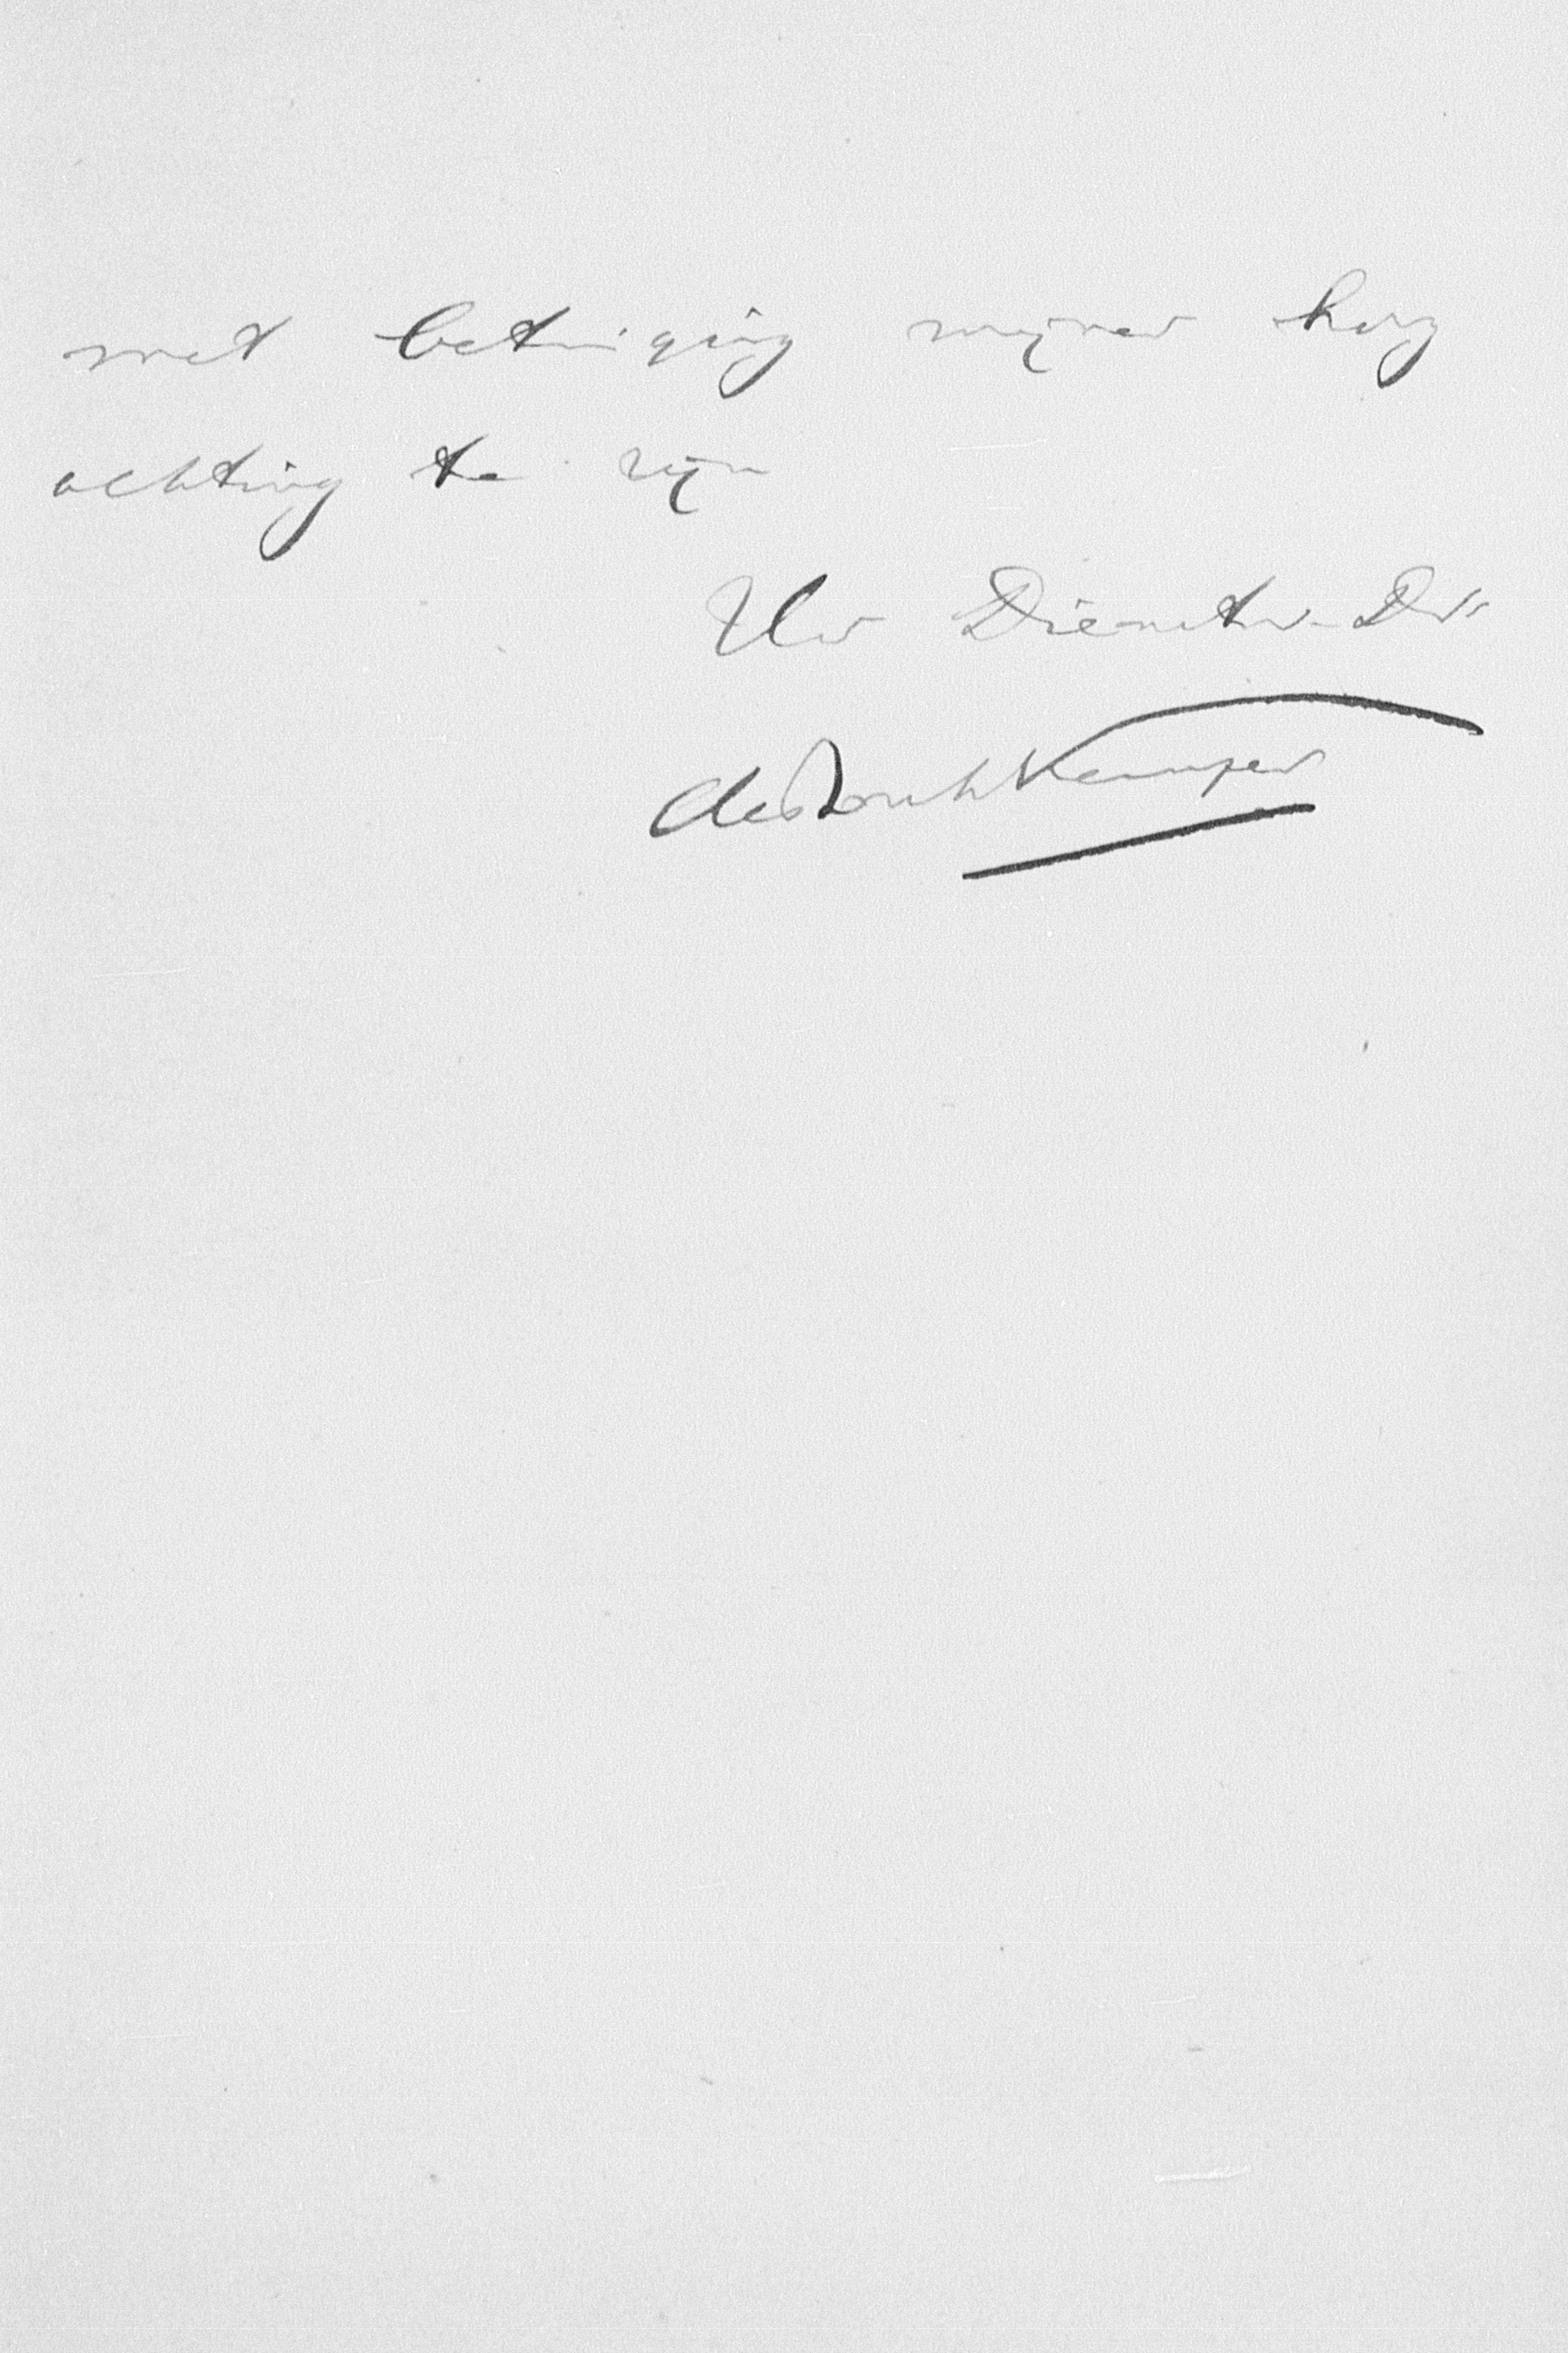 met betuiging mijner hoog
achting te zijn
Uw Dienstw. Dr
de Bosch Kemper